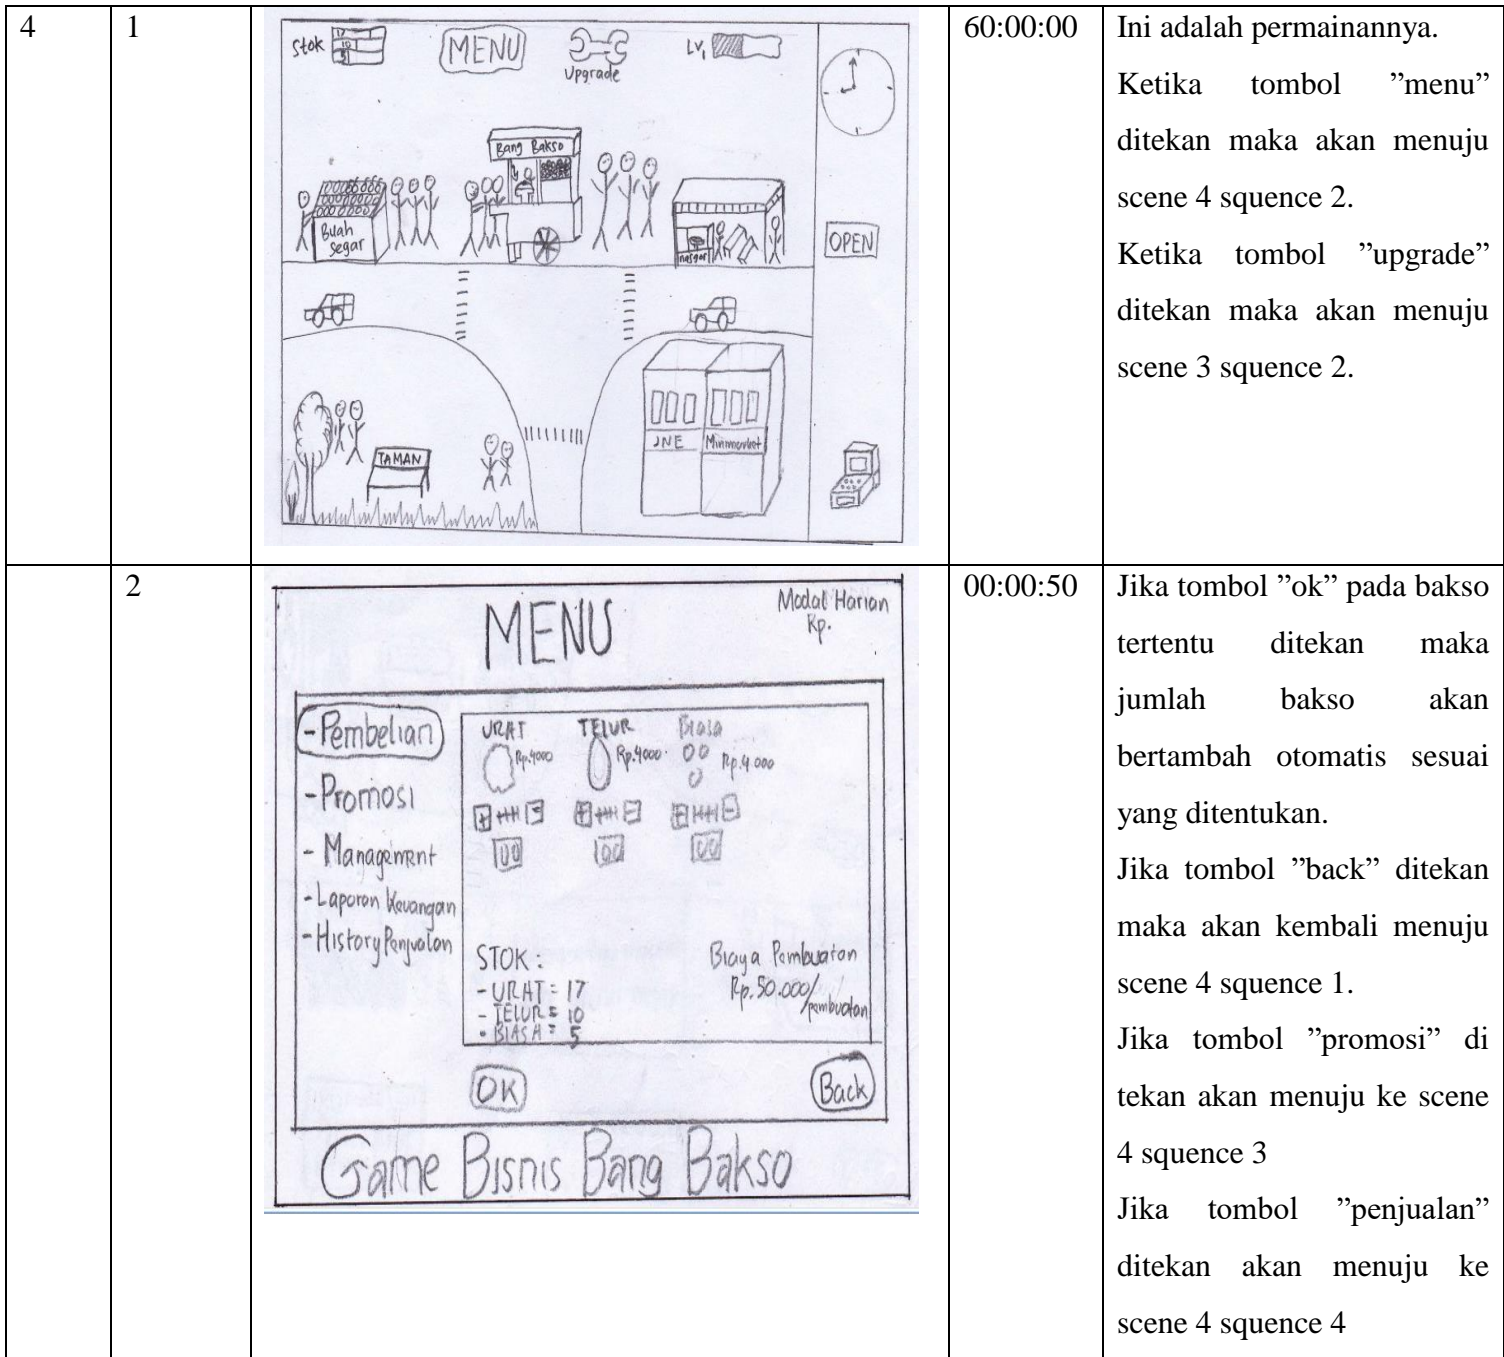 4
1
Stok
17
10
5
MENU
Upgrade
LV1
Bang Bakso
Buah
Segar
nasgor
OPEN
TAMAN
JNE
Minimarket
60:00:00
Ini adalah permainannya.
Ketika tombol ”menu”
ditekan maka akan menuju
scene 4 squence 2.
Ketika tombol ”upgrade”
ditekan maka akan menuju
scene 3 squence 2.
2
MENU
Modal Harian
Rp.
-Pembelian
-Promosi
- Management
-Laporan Keuangan
-History Penjualan
URAT
Rp.4000
TELUR
Rp.4000
Biasa
Rp.4.000
+ -
+ -
+ -
00
00
00
STOK :
- URAT = 17
- TELUR = 10
- BIASA = 5
Biaya Pembuatan
Rp.50.000/
pembuatan
OK
Back
Game Bisnis Bang Bakso
00:00:50
Jika tombol ”ok” pada bakso
tertentu ditekan maka
jumlah bakso akan
bertambah otomatis sesuai
yang ditentukan.
Jika tombol ”back” ditekan
maka akan kembali menuju
scene 4 squence 1.
Jika tombol ”promosi” di
tekan akan menuju ke scene
4 squence 3
Jika tombol ”penjualan”
ditekan akan menuju ke
scene 4 squence 4